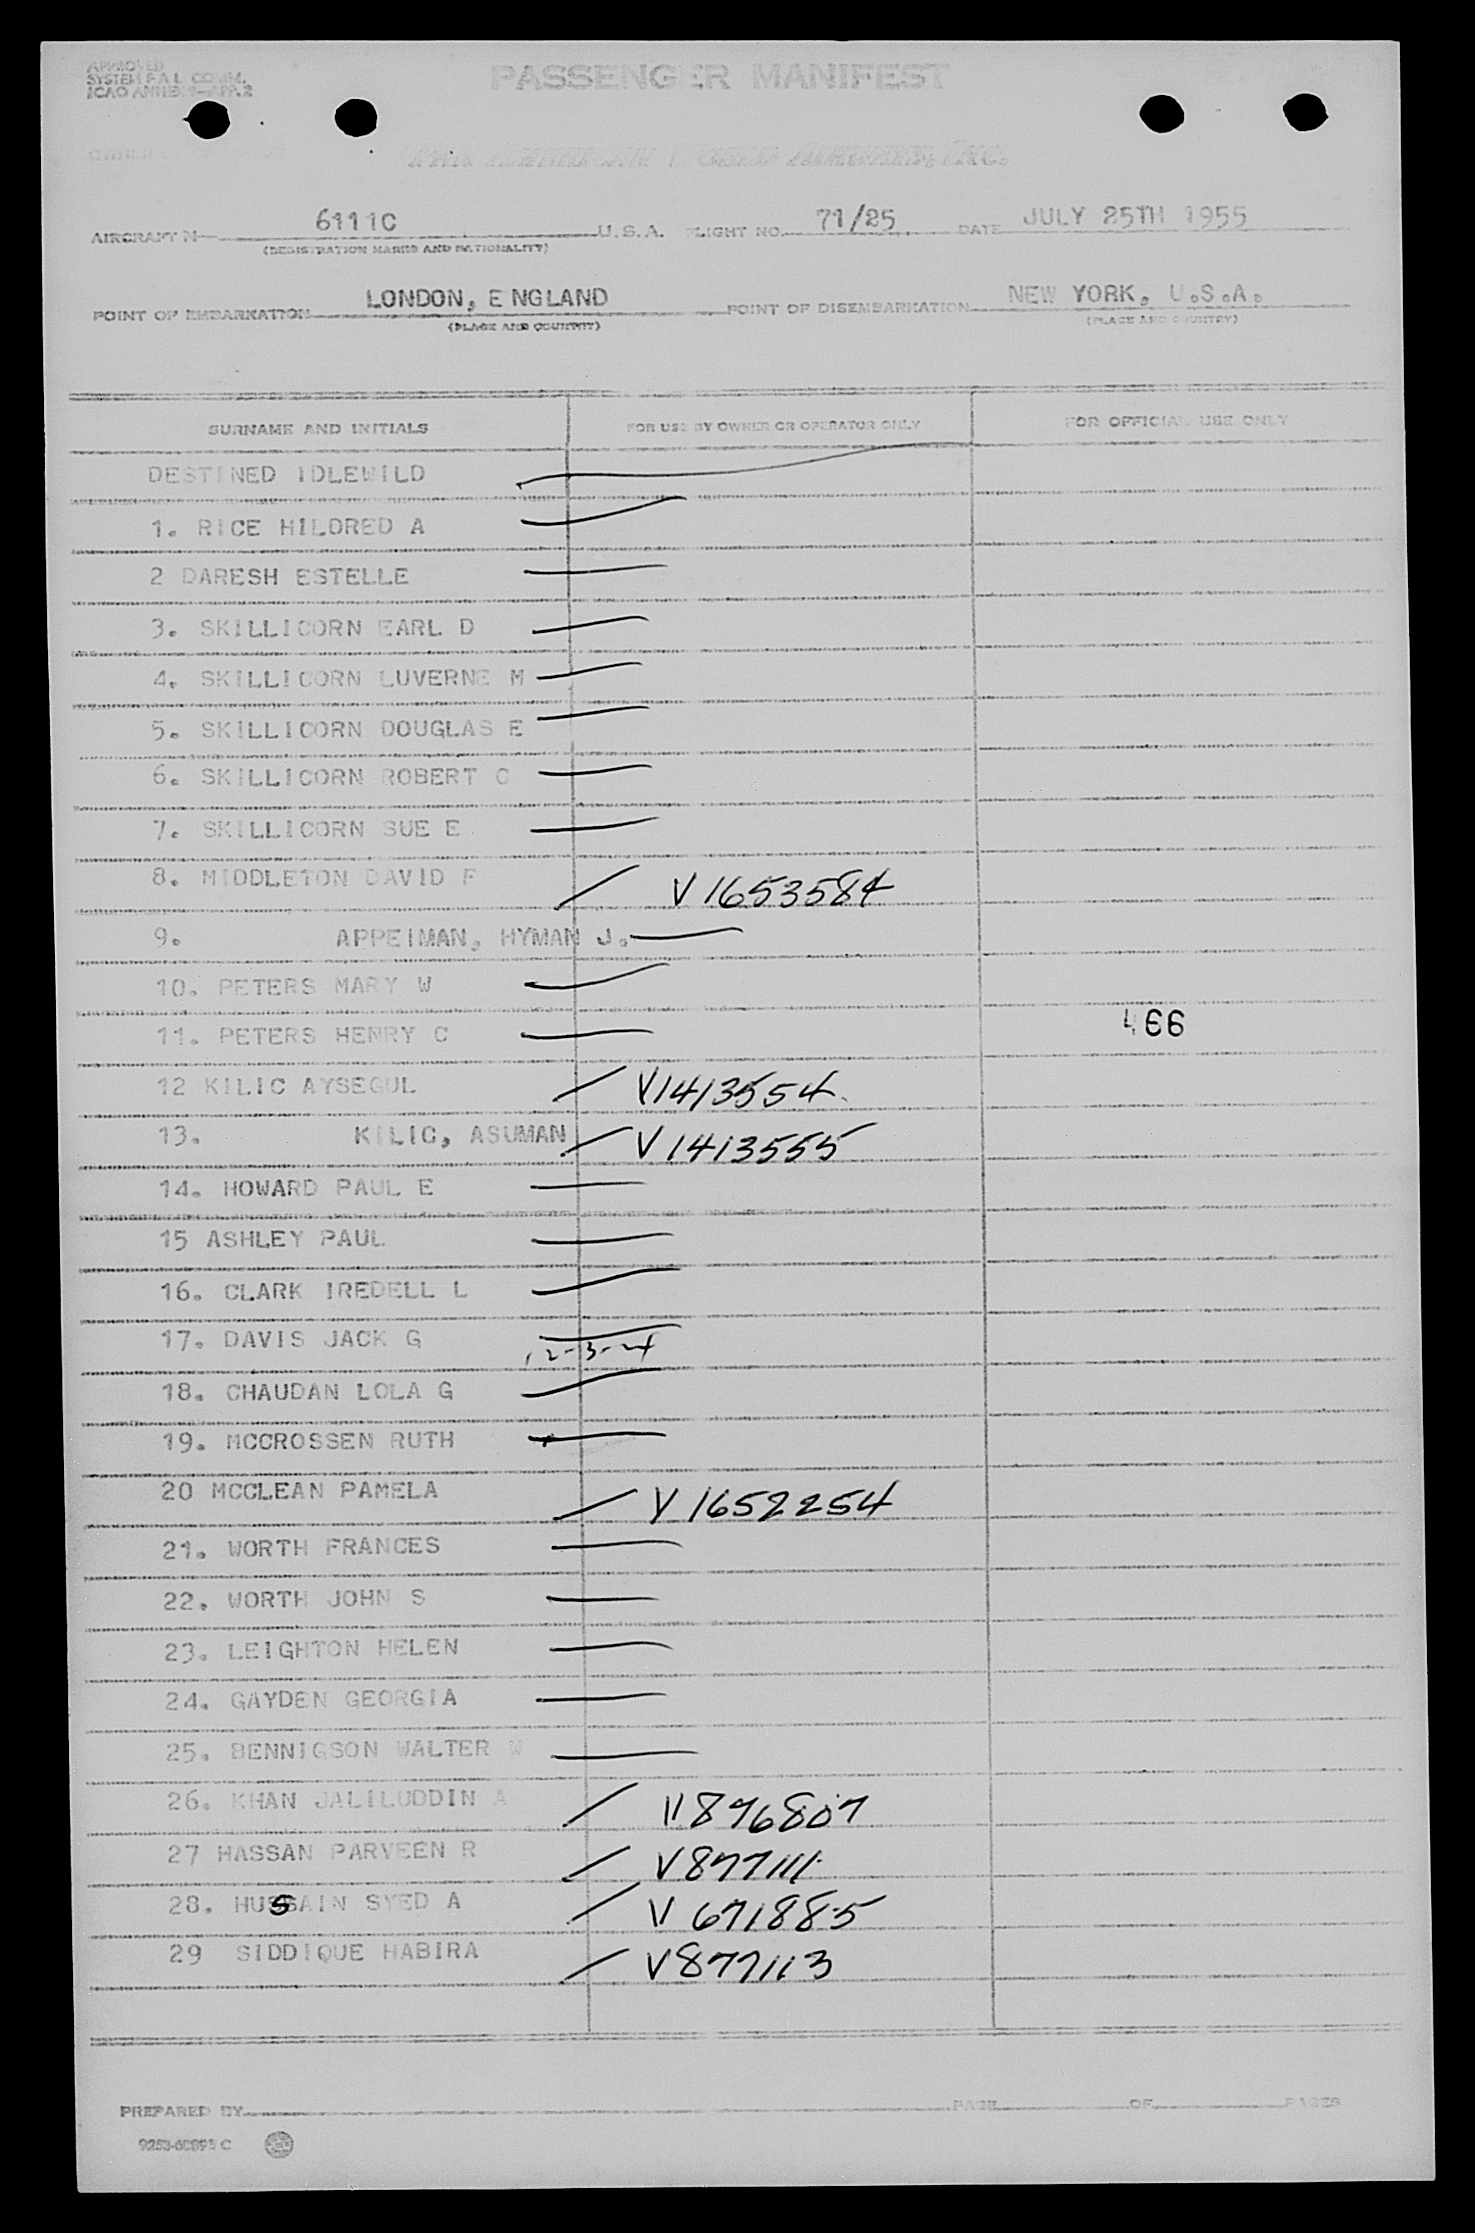 APPROVED
SYSTEM F.A.L. COMM.
ICAO ANNEX 9-APP. 2
PASSENGER MANIFEST
AIRCRAFT N 6111C U.S.A. FLIGHT NO. 71/25 DATE JULY 25TH 1955
(REGISTRATION MARKS AND NATIONALITY)
POINT OF EMBARKATION LONDON, E NGLAND POINT OF DISEMBARKATION NEW YORK, U.S.A.
(PLACE AND COUNTRY) (PLACE AND COUNTRY)
SURNAME AND INITIALS FOR USE BY OWNER OR OPERATOR ONLY FOR OFFICIAL USE ONLY
DESTINED IDLEWILD
1. RICE HILDRED A
2 DARESH ESTELLE
3. SKILLICORN EARL D
4. SKILLICORN LUVERNE M
5. SKILLICORN DOUGLAS E
6. SKILLICORN ROBERT C
7. SKILLICORN SUE E
8. MIDDLETON DAVID F V 1653584
9. APPEIMAN, HYMAN J.
10. PETERS MARY W
11. PETERS HENRY C 466
12 KILIC AYSEGUL V1413554
13. KILIC, ASUMAN V 1413555
14. HOWARD PAUL E
15 ASHLEY PAUL
16. CLARK IREDELL L
17. DAVIS JACK G
12-3-24
18. CHAUDAN LOLA G
19. MCCROSSEN RUTH
20 MCCLEAN PAMELA V 1652254
21. WORTH FRANCES
22. WORTH JOHN S
23. LEIGHTON HELEN
24. GAYDEN GEORGIA
25. BENNIGSON WALTER W
26. KHAN JALILUDDIN A V 876807
27 HASSAN PARVEEN R V 877111
28. HUSSAIN SYED A V 671885
29 SIDDIQUE HABIRA V877113
PREPARED BY PAGE OF PAGES